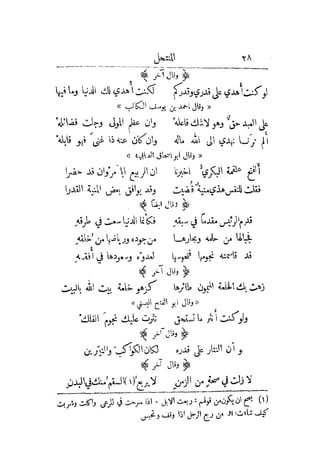 ٢٨ المنتحل
﴿ وقال آخر ﴾
لو كنت أهدي على قدري وقدركم لكنت أهدي لك الدنيا وما فيها
« وقال احمد بن يوسف الكاتب »
على العبد حق وهو لا شك فاعله وان عظم المولى وجلت فضائله
ألم ترنا نهدي الى الله ماله وان كان عنه ذا غنى فهو قابله
« وقال ابو اسحاق الصابي »
البكري أخبرنا ان الربيع ابا مروان قد حضرا
فقلت للنفس هذي منية قضيت وقد يوافق بعض المنية القدرا
﴿ وقال ايضا ﴾
قدم الرئيس مقدما في سبقه فكأنما الدنيا سعت في طرقه
فجبالها من حلمه وبحارها من جوده ورياضها من خلقه
قد قاسمته نجومها فنحوسها لعدوه وسعودها في أفقه
﴿ وقال آخر ﴾
زهت بك الخلعة الميمون طائرها كزهو خلعة بيت الله بالبيت
« وقال ابو الفتح البستي »
ولو كنت أنثر ما تستحق نثرت عليك نجوم الفلك
﴿ وقال آخر ﴾
و أن النثار على قدره لكان الكواكب والنيرين
﴿ وقال آخر ﴾
لا زلت في صحة من الزمن لا يرتع (١) السقم منك في البدن
(١) يصح ان يكون من قولهم : ربعت الابل ٠ اذا سرحت في المرعى واكلت وشربت
كيف شاءت من ربع الرجل اذا وقف وتحبس